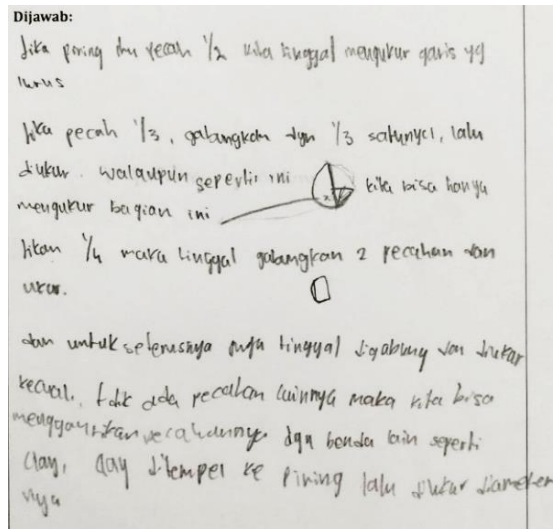 Dijawab:
Jika piring itu pecah 1/2 kita tinggal mengukur garis yg
lurus
Jika pecah 1/3, gabungkan dgn 1/3 satunya, lalu
diukur. walaupun seperti ini kita bisa hanya
mengukur bagian ini
1/4 maka tinggal gabungkan 2 pecahan dan
ukur.
dan untuk seterusnya juga tinggal digabung dan diukur
kecuali, tdk ada pecahan lainnya maka kita bisa
pecahannya dgn benda lain seperti
clay, clay ditempel ke piring lalu diukur diameter
nya